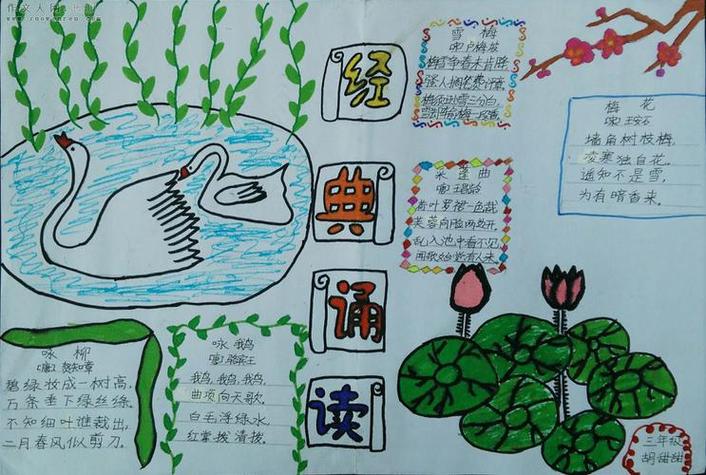 经
典
诵
读
雪 梅
梅雪争春未肯降
骚人搁笔费评章
梅须逊雪三分白,
采 莲 曲
唐 王昌龄
荷叶罗裙一色裁
芙蓉向脸两边开.
乱入池中看不见
闻歌始觉有人来.
梅 花
王安石
墙角树枝梅,
凌寒独自花。
遥知不是雪,
为有暗香来。
咏 柳
贺知章
碧绿妆成一树高,
万条垂下绿丝绦。
不知细叶谁裁出,
二月春风似剪刀。
咏 鹅
骆宾王
鹅,鹅,鹅,
曲项向天歌.
白毛浮绿水,
红掌拨清拨.
三年级
胡甜甜